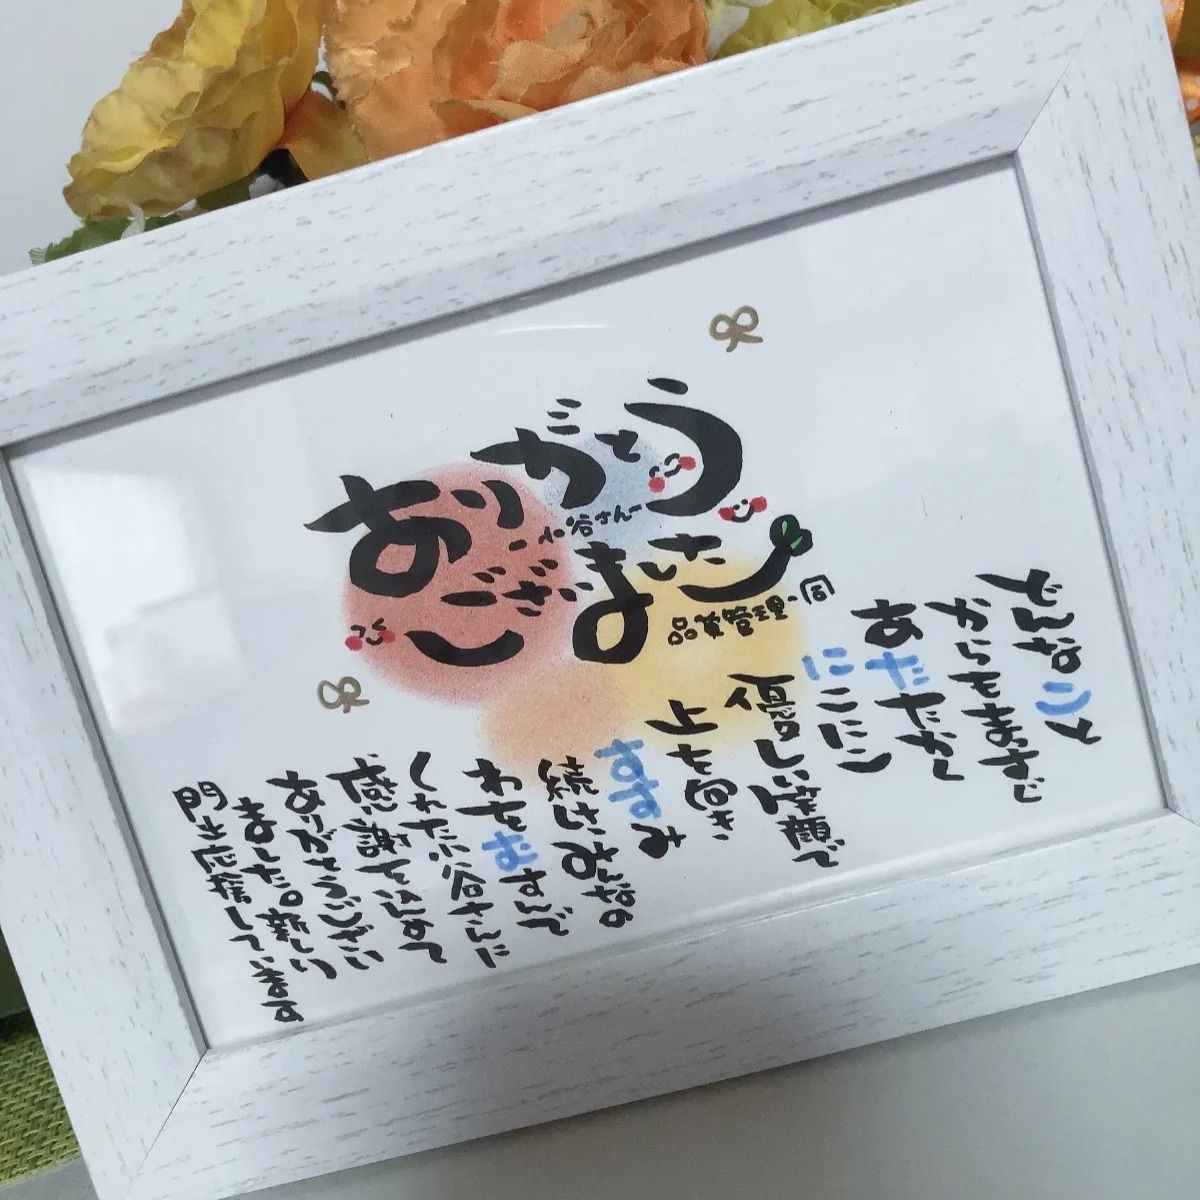 ありがとう
-小谷さん-
ございました
品質管理一同
どんなこと
からもまっすぐ
あたたかく
にこにこ
優しい笑顔で
上を向き
すすみ
続けみんなの
わをむすんで
くれた小谷さんに
感謝を込めて
ありがとうござい
ました。新しい
門出応援しています